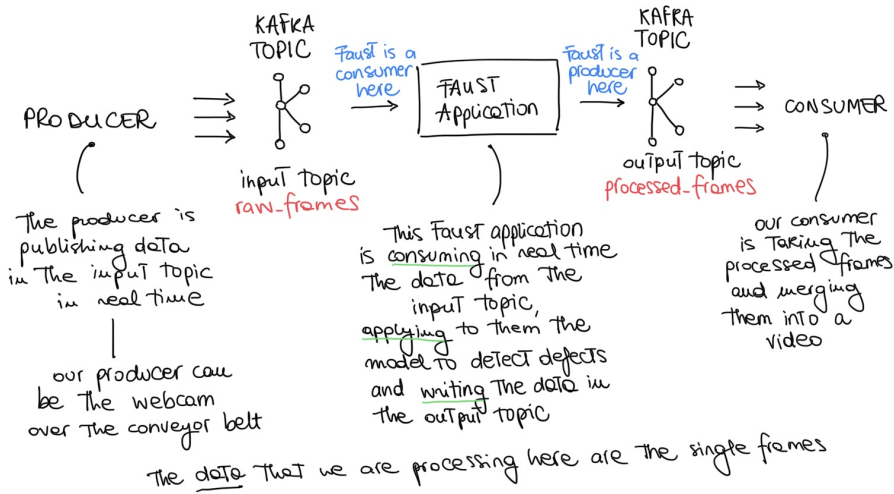 KAFKA
TOPIC
KAFKA
TOPIC
Faust is a
consumer
here
Faust is a
producer
here
FAUST
Application
PRODUCER
CONSUMER
input topic
raw_frames
output topic
processed_frames
The producer is
publishing data
in the input topic
in real time
our producer can
be the webcam
over the conveyor belt
This Faust application
is consuming in real time
the data from the
input topic,
applying to them the
model to detect defects
and writing the data in
the output topic
our consumer
is taking the
processed frames
and merging
them into a
video
The data that we are processing here are the single frames